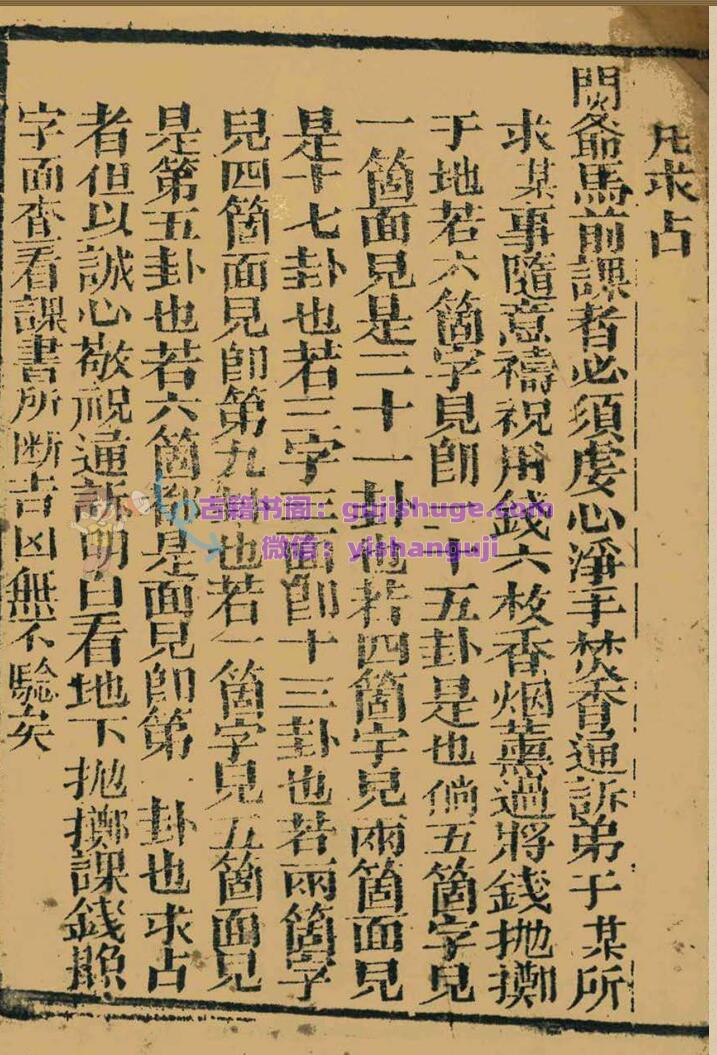 凡求占
関爺馬前課者必須虔心淨手焚香通訴弟子某所
求某事隨意禱祝用錢六枚香烟薰過將錢抛擲
于地若六箇字見卽二十五卦是也倘五箇字見
一箇面見是二十一卦也若四箇字見兩箇面見
是十七卦也若三字三面卽十三卦也若兩箇字
見四箇面見卽第九卦也若一箇字見五箇面見
是第五卦也若六箇都是面見卽第一卦也求占
者但以誠心敬祝通訴明白看地下抛擲課錢照
字面查看課書所断吉凶無不驗矣
古籍书阁：gujishuge.com
微信：yishanguji